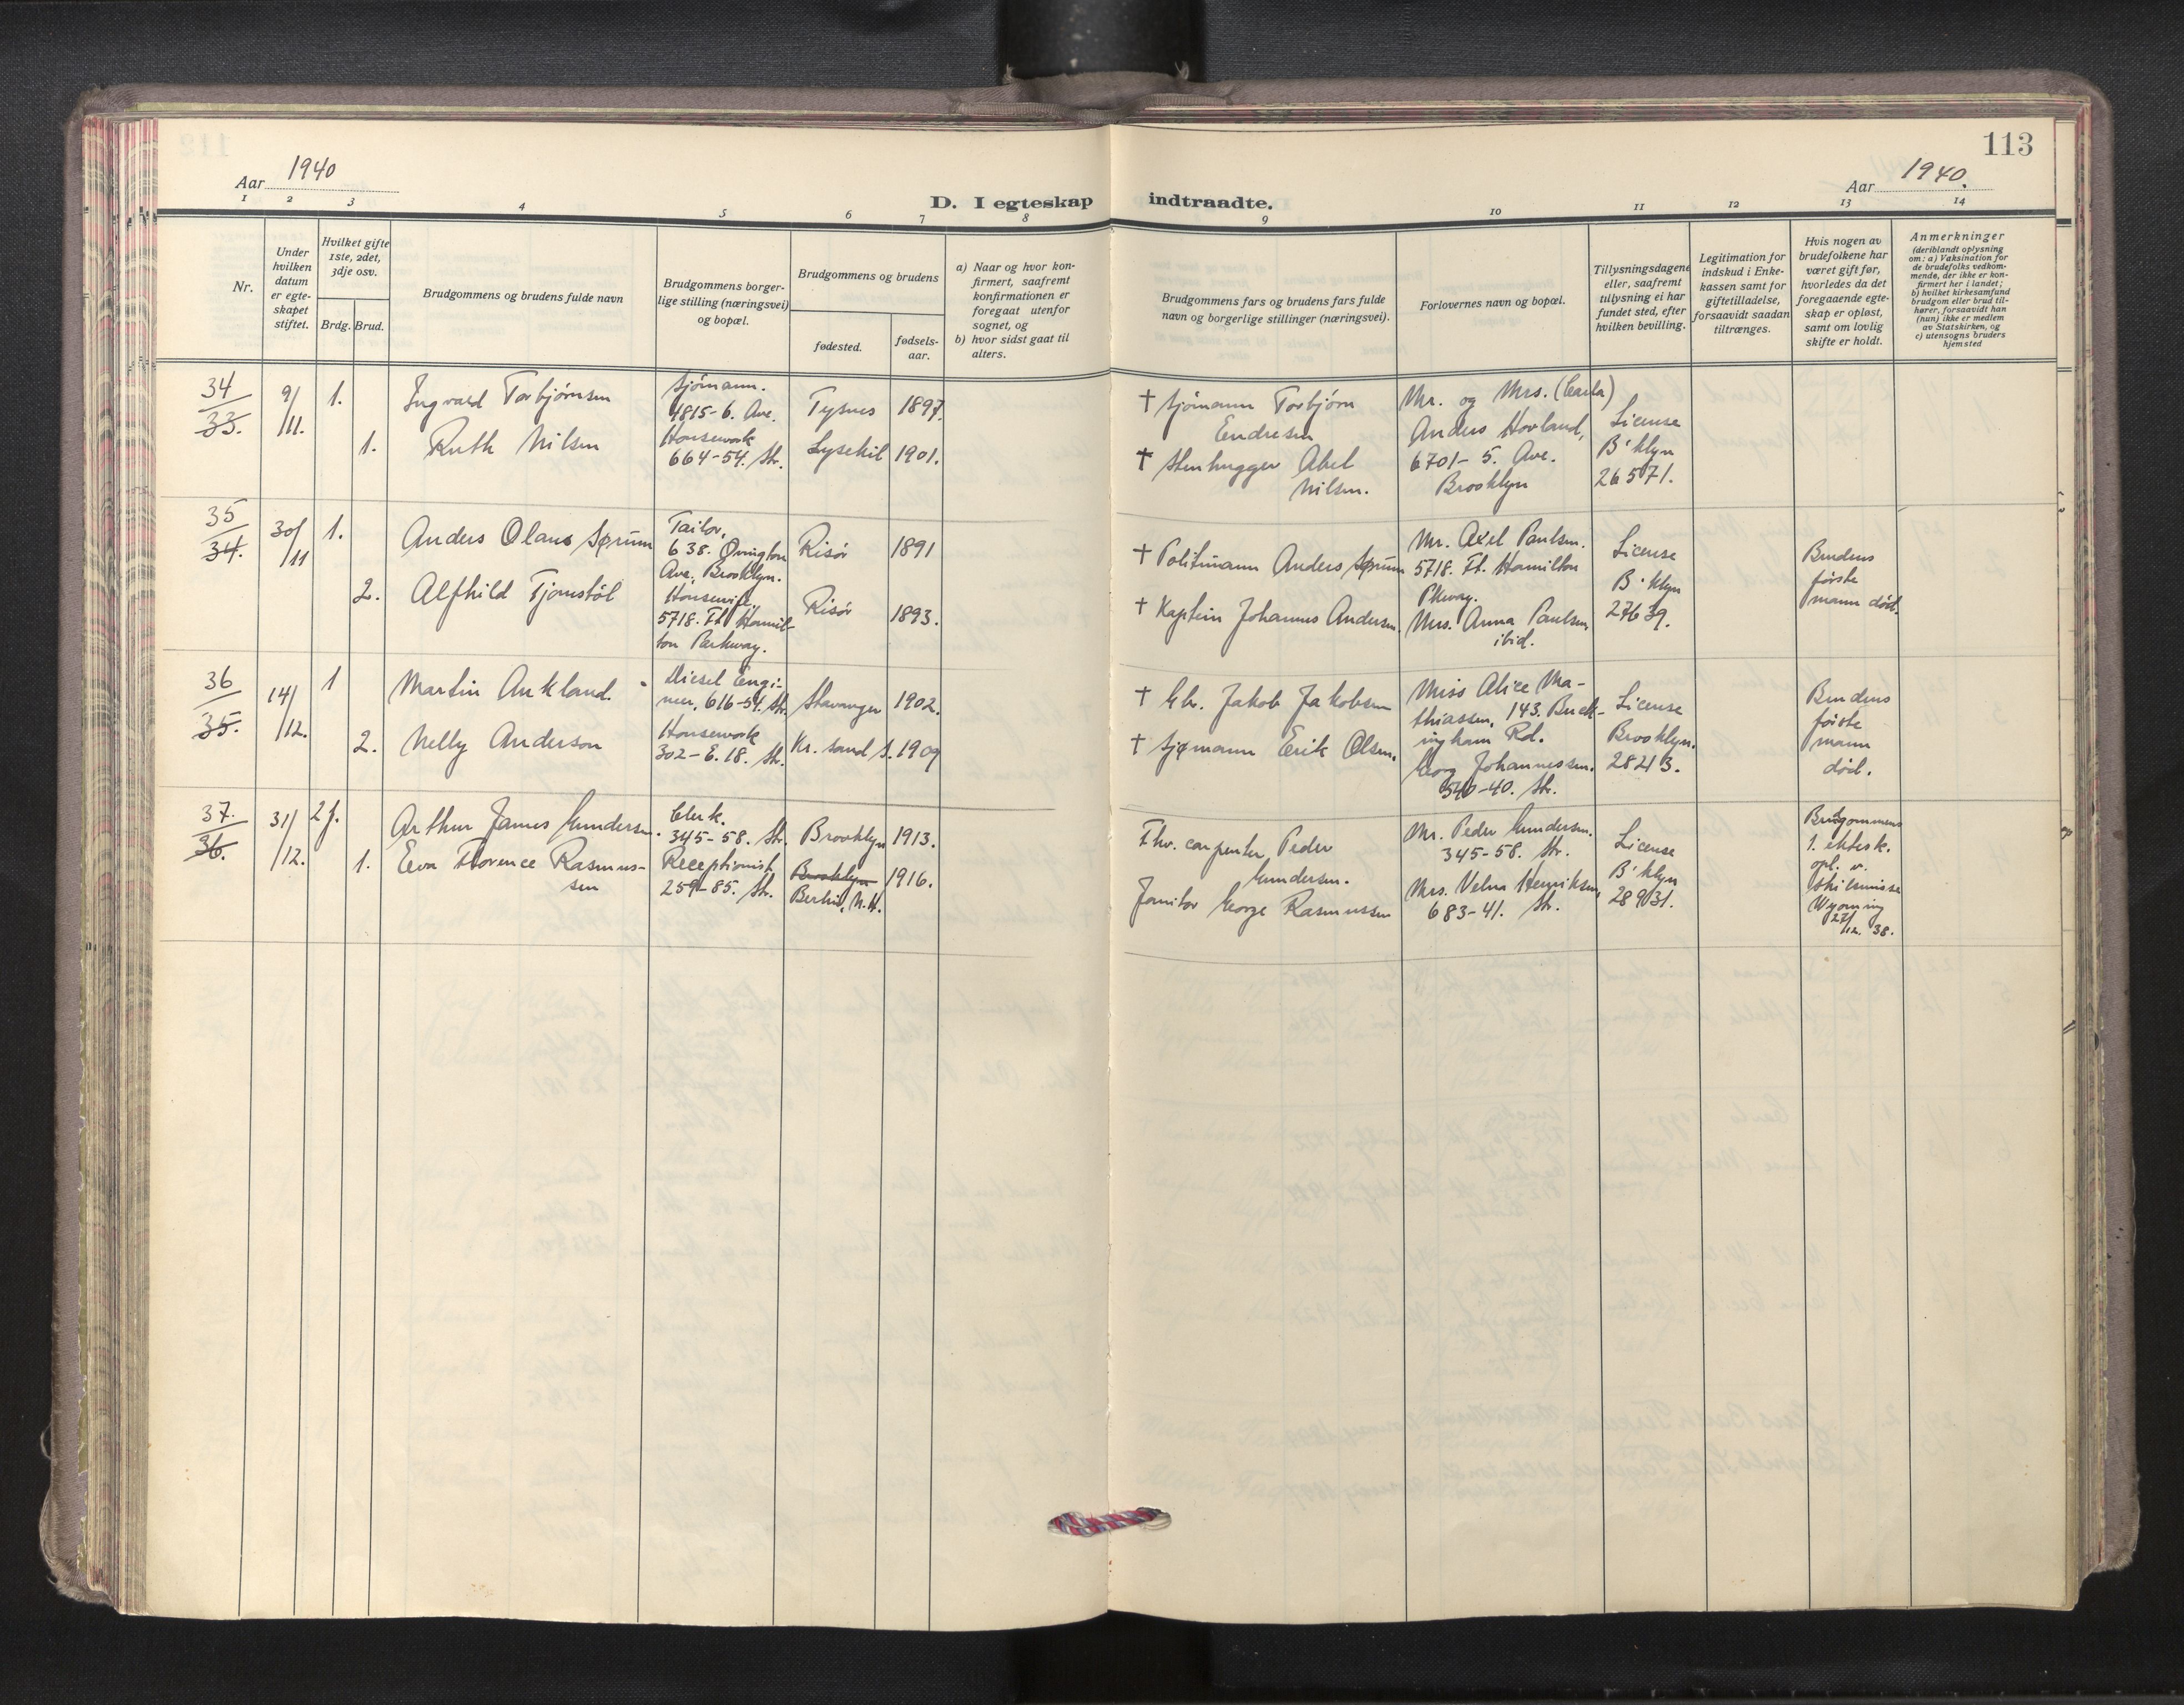 113
Aar 1940
Aar 1940.
D. I egteskap indtraadte.
1 2 3 4 5 6 7 8 9 10 11 12 13 14
Nr.
Under hvilken datum er egte-skapet stiftet.
Hvilket gifte 1ste, 2det, 3dje osv.
Brdg. Brud.
Brudgommens og brudens fulde navn
Brudgommens borger-lige stilling (næringsvei) og bopæl.
Brudgommens og brudens
fødested.
fødsels-aar.
a) Naar og hvor kon-firmert, saafremt konfirmationen er foregaat utenfor sognet, og
b) hvor sidst gaat til alters.
Brudgommens fars og brudens fars fulde navn og borgerlige stillinger (næringsvei).
Forlovernes navn og bopæl.
Tillysningsdagene eller, saafremt tillysning ei har fundet sted, efter hvilken bevilling.
Legitimation for indskud i Enke-kassen samt for giftetilladelse, forsaavidt saadan tiltrænges.
Hvis nogen av brudefolkene har været gift før, hvorledes da det foregaaende egte-skap er opløst, samt om lovlig skifte er holdt.
Anmerkninger (deriblandt oplysning om: a) Vaksination for de brudefolks vedkom-mende, der ikke er kon-firmert her i landet; b) hvilket kirkesamfund brudgom eller brud til-hører, forsaavidt han (hun) ikke er medlem av Statskirken, og c) utensogns bruders hjemsted
34
33.
9/11.
1.
Ingvard Torbjørnsen
Sjømann.
4815-6. Ave.
Tysnes
1897.
1.
Ruth Nilsen
Housework
664-54. Str.
Lysekil
1901.
† Sjømann Torbjørn
Endresen
† Stenhugger Abel
Nilsen.
Mr. og Mrs. (Carla)
Anders Hovland,
6701-5. Ave.
Brooklyn
License
B'klyn
26571.
35
34.
30/11
1.
Anders Olaus Sørum
Tailor,
638. Ovington
Ave, Brooklyn.
Risør
1891
2.
Alfhild Tjomstøl
Housewife,
5718. Ft Hamil-
ton Parkway.
Risør
1893.
† Politimann Anders Sørum
† Kaptein Johannes Andersen.
Mr. Axel Paulsen.
5718. Ft. Hamilton
Pkway.
Mrs. Anna Paulsen,
ibid.
License
B'klyn
27639.
Brudens
første
mann død.
36
35.
14/12.
1
Martin Aukland.
Diesel Engi-
neer, 616-54. Str.
Stavanger
1902.
2.
Nelly Anderson
Housework
302-E. 18. Str.
Kr. sand S.
1909
† Gbr. Jakob Jakobsen
† Sjømann Erik Olsen.
Miss Alice Ma-
thiassen, 143. Buck-
ingham Rd.
Georg Johannessen.
540-40. Str.
License
Brooklyn.
28213.
Brudens
første
mann
død.
37.
36.
31/12.
2 f.
Arthur James Gundersen.
Clerk.
345-58. Str.
Brooklyn
1913.
1.
Eva Florence Rasmus-
sen
Receptionist
259-85. Str.
Brooklyn
Berlin, N.H.
1916.
Fhv. carpenter Peder
Gundersen.
Janitor George Rasmussen
Mr. Peder Gundersen.
345-58. Str.
Mrs. Velma Henriksen,
683-41. Str.
License
B'klyn
28931.
Brudgommens
1. ektesk.
opl. v.
skilsmisse
Wyoming
27/12. 38.